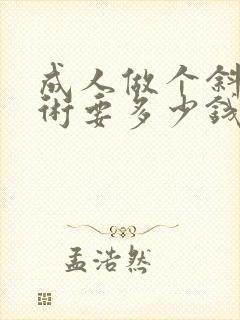 成人做个斜
术要多少钱
孟浩然